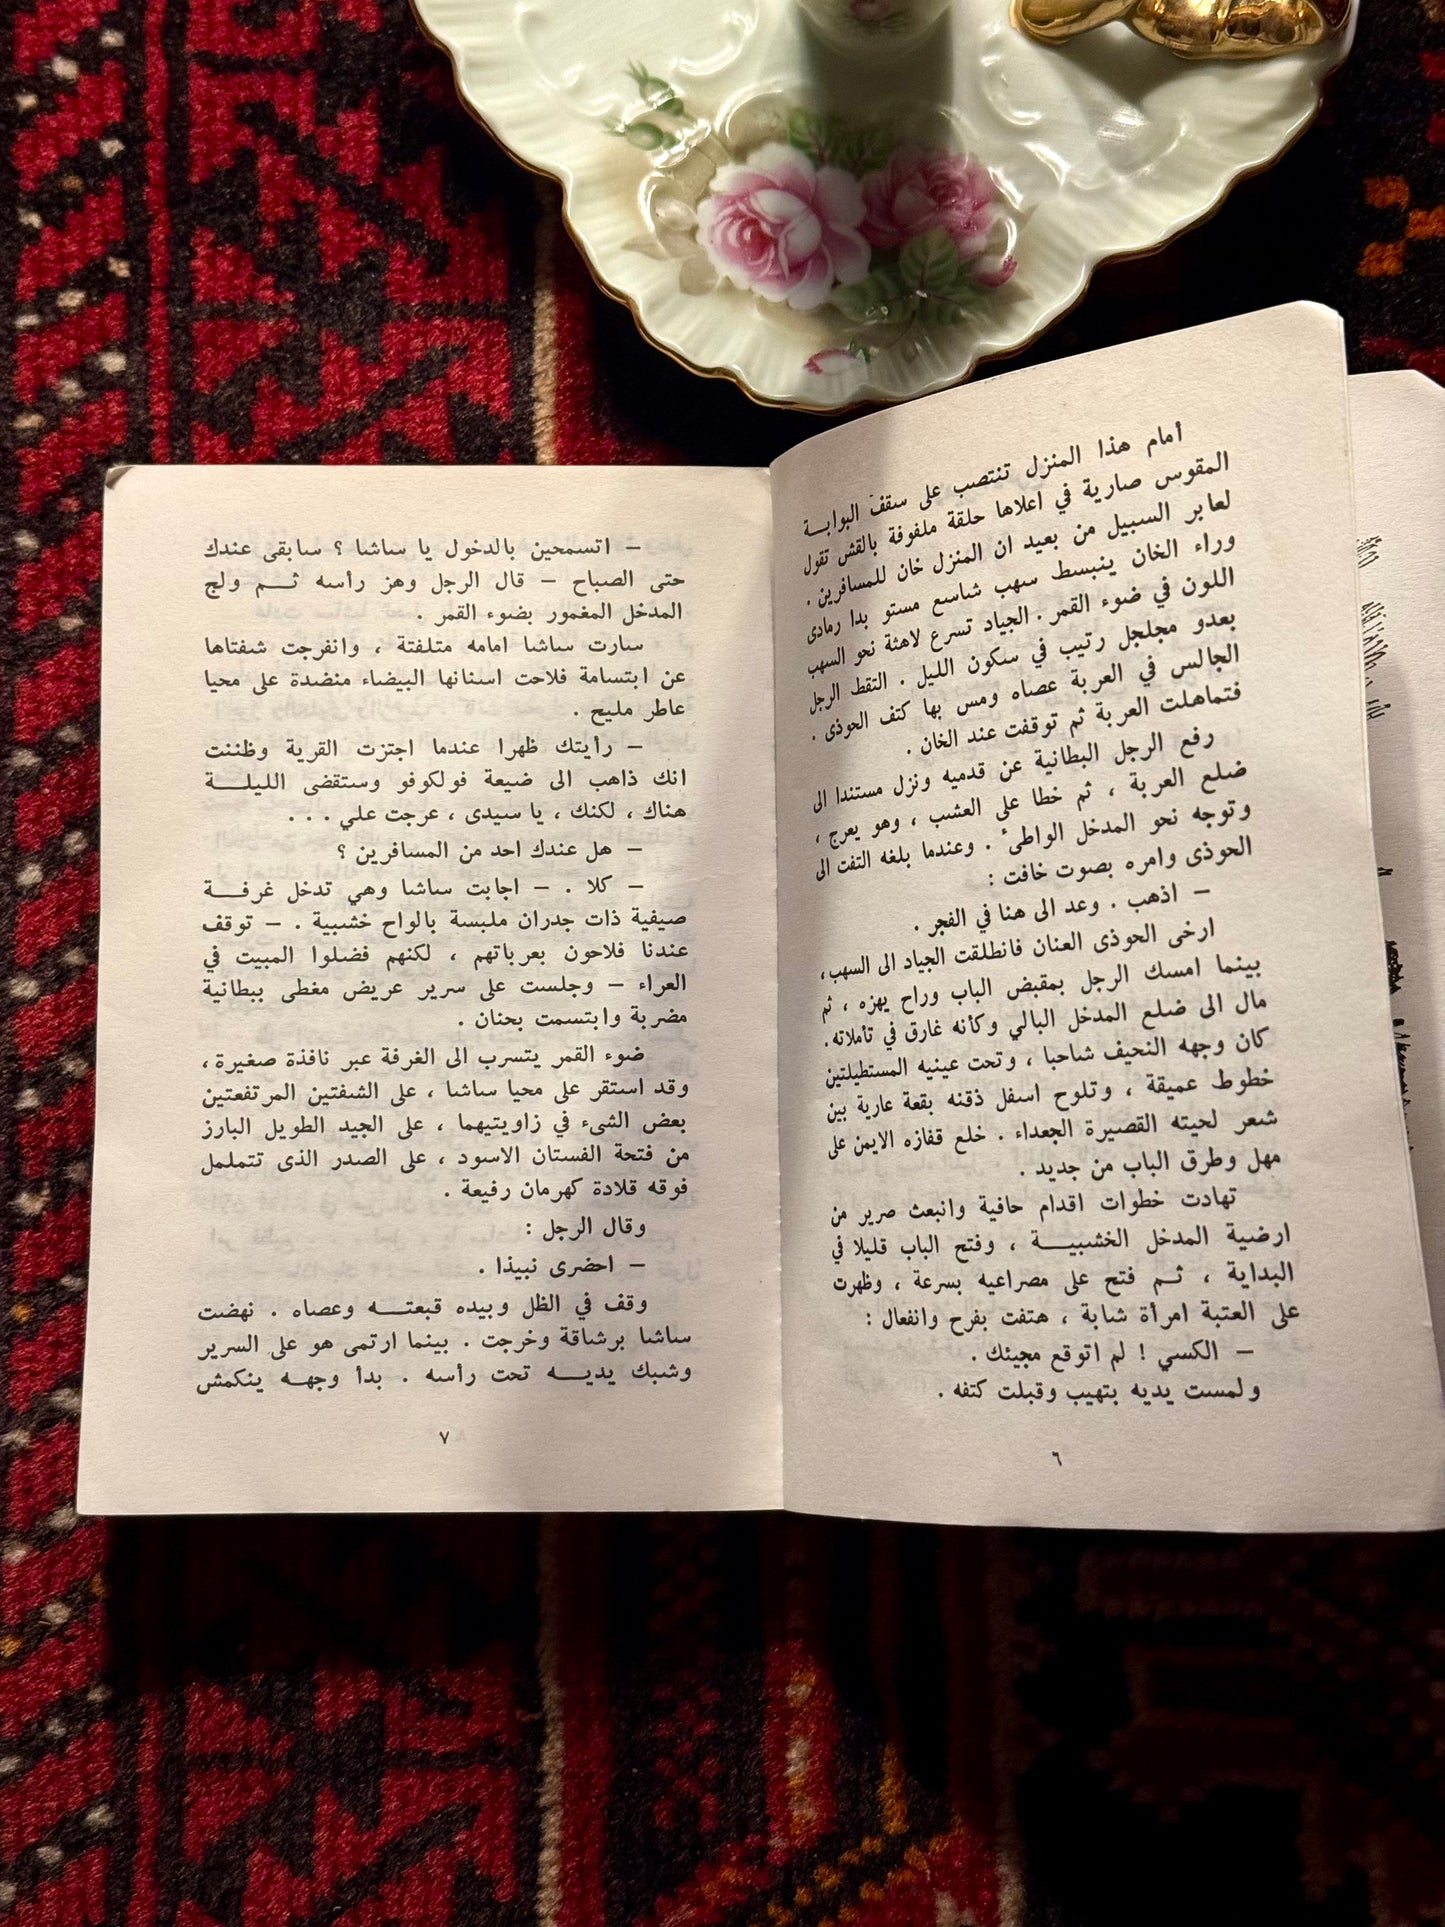 أمام هذا المنزل تنتصب على سقف البوابـــة
المقوس صارية في اعلاها حلقة ملفوفة بالقش تقول
لعابر السبيل من بعيد ان المنزل خان للمسافرين .
وراء الخان ينبسط سهب شاسع مستو بدا رمادى
اللون في ضوء القمر . الجياد تسرع لاهثة نحو السهب
بعدو مجلجل رتيب في سكون الليل . التقط الرجل
الجالس في العربة عصاه ومس بها كتف الحوذى .
فتماهلت العربة ثم توقفت عند الخان .
رفع الرجل البطانية عن قدميه ونزل مستندا الى
ضلع العربة ، ثم خطا على العشب ، وهو يعرج ،
وتوجه نحو المدخل الواطىء . وعندما بلغه التفت الى
الحوذى وامره بصوت خافت :
– اذهب . وعد الى هنا في الفجر .
ارخى الحوذى العنان فانطلقت الجياد الى السهب ،
بينما امسك الرجل بمقبض الباب وراح يهزه ، ثم
مال الى ضلع المدخل البالي وكأنه غارق في تأملاته .
كان وجهه النحيف شاحبا ، وتحت عينيه المستطيلتين
خطوط عميقة ، وتلوح اسفل ذقنه بقعة عارية بين
شعر لحيته القصيرة الجعداء . خلع قفازه الايمن على
مهل وطرق الباب من جديد .
تهادت خطوات اقدام حافية وانبعث صرير من
ارضية المدخل الخشبيـــة ، وفتح الباب قليلا في
البداية ، ثـم فتح على مصراعيه بسرعة ، وظهرت
على العتبة امرأة شابة ، هتفت بفرح وانفعال :
– الكسي ! لم اتوقع مجيئك .
ولمست يديه بتهيب وقبلت كتفه .
٦
– اتسمحين بالدخول يا ساشا ؟ سابقى عندك
حتى الصباح – قال الرجل وهز رأسه ثـــم ولج
المدخل المغمور بضوء القمر .
سارت ساشا امامه متلفتة ، وانفرجت شفتاها
عن ابتسامة فلاحت اسنانها البيضاء منضدة على محيا
عاطر مليح .
– رأيتك ظهرا عندما اجتزت القرية وظننت
انك ذاهب الى ضيعة فولكوفو وستقضى الليلـــة
هناك ، لكنك ، يا سيدى ، عرجت علي . . .
– هل عندك احد من المسافرين ؟
– كلا . – اجابت ساشا وهي تدخل غرفـــة
صيفية ذات جدران ملبسة بالواح خشبية . – توقف
عندنا فلاحون بعرباتهم ، لكنهم فضلوا المبيت في
العراء – وجلست على سرير عريض مغطى ببطانية
مضربة وابتسمت بحنان .
ضوء القمر يتسرب الى الغرفة عبر نافذة صغيرة ،
وقد استقر على محيا ساشا ، على الشفتين المرتفعتين
بعض الشىء في زاويتيهما ، على الجيد الطويل البارز
من فتحة الفستان الاسود ، على الصدر الذى تتململ
فوقه قلادة كهرمان رفيعة .
وقال الرجل :
– احضرى نبيذا .
وقف في الظل وبيده قبعتـــه وعصاه . نهضت
ساشا برشاقة وخرجت . بينما ارتمى هو على السرير
وشبك يديـــه تحت رأسه . بدأ وجهـه ينكمش
٧